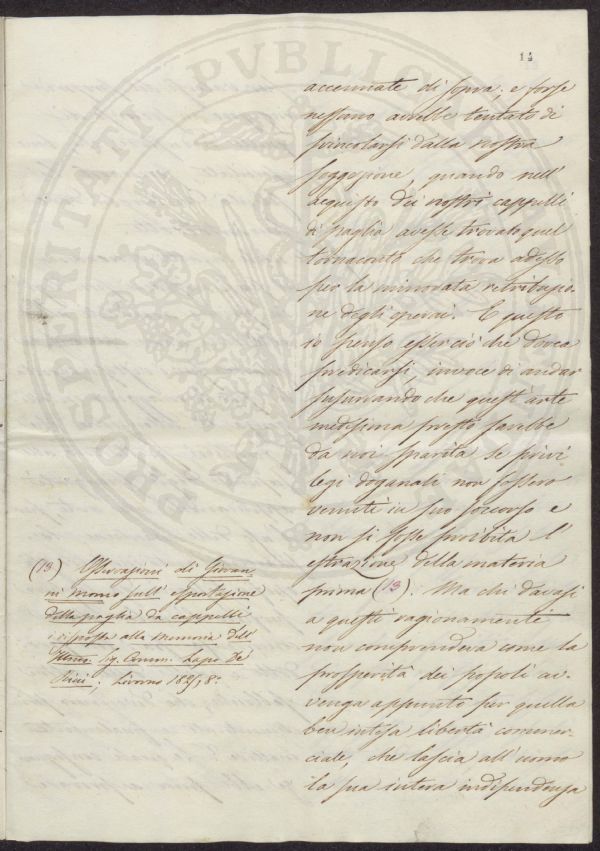 14
accennate di sopra; e forse
nessuno avrebbe tentato di
svincolarsi dalla nostra
soggezione, quando nell'
acquisto dei nostri cappelli
di paglia avesse trovato quel
tornaconto che trova adesso
per la minorata retribuzio-
ne degli operai. E questo
io penso esser ciò che dovea
predicarsi, invece di andar
susurrando che quest'arte
medesima presto sarebbe
da noi sparita se privi-
legi doganali non fossero
venuti in suo soccorso e
non si fosse proibita l'
estrazione della materia
prima (13). Ma chi davasi
a questi ragionamenti
non comprendeva come la
prosperità dei popoli av-
venga appunto per quella
ben intesa libertà commer-
ciale, che lascia all'uomo
la sua intera indipendenza
(13) Osservazioni di Giovan-
ni sull'esportazione
della paglia da cappelli
in risposta alla memoria dell'
Sig. Comm. Lapo de'
Ricci. Livorno 8.°
PROSPERITATI PVBLICAE